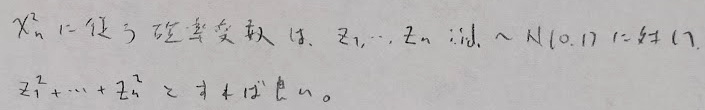 χ²ₙ に従う確率変数は、Z₁,…,Zₙ iid ~ N(0,1) に対し、
Z₁²+…+Zₙ² とすれば良い。